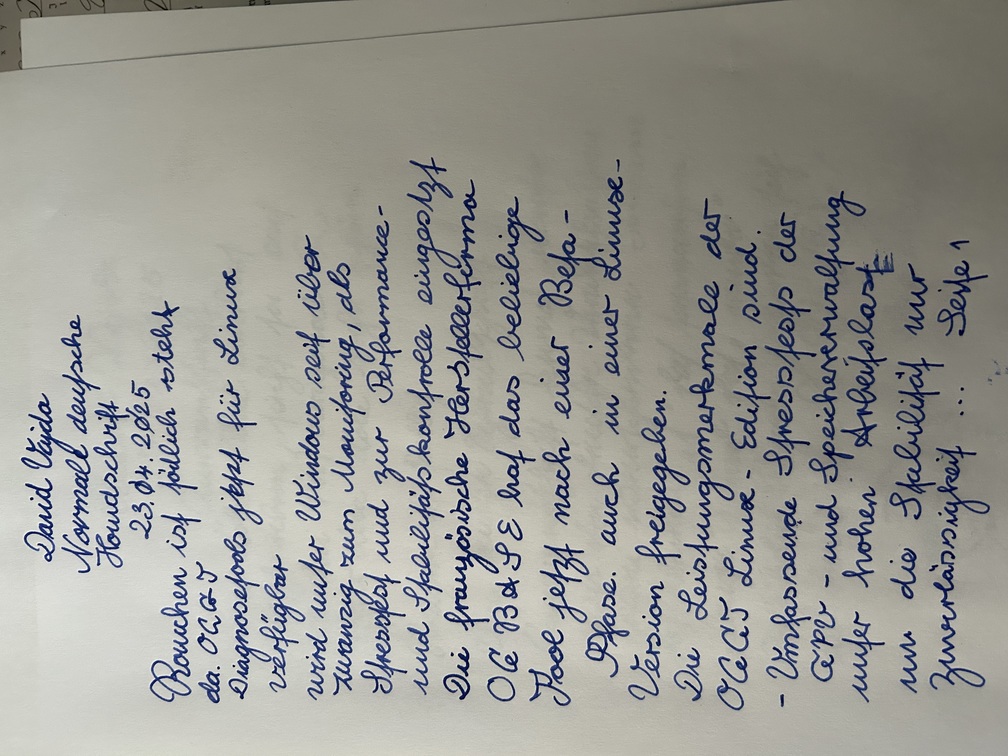 David Vajda
Normale deutsche
Handschrift
23.04.2025
Rauchen ist tödlich steht
da. OCCT
Diagnosetools jetzt für Linux
verfügbar
wird unter Windows seit über
zwanzig zum Monitoring, als
Stresstest und zur Performance-
und Stabilitätskontrolle eingesetzt
Die französische Herstellerfirma
OC BASE hat das beliebige
Tool jetzt nach einer Beta-
Phase. auch in einer Linux-
Version freigegeben.
Die Leistungsmerkmale der
OCCT Linux-Edition sind.
- Umfassende Stresstests der
CPU- und Speicherverwaltung
unter hoher Arbeitslast
um die Stabilität und
Zuverlässigkeit ... Seite 1